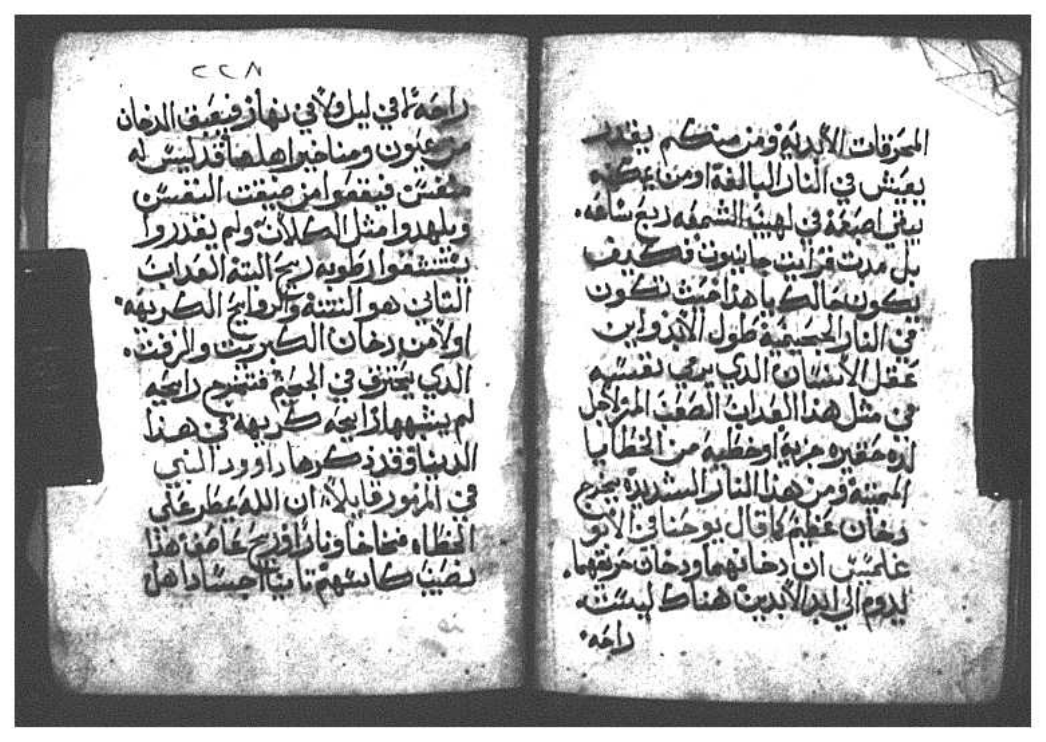 المحرقات الأبدية ومن منكم يقدر
يعيش في النار البالغة او من يمكنه
يبقي اصبعه في لهيب الشمعه ربع ساعه.
بل مدت قرايت فكيف
يكون حالك يا هذا حيث تكون
في النار الجحيمية طول الأبد واين
عقل الأنسان الذي يرمي نفسه
في مثل هذا العداب الصعب المر لاجل
لده حقيره جزية او خطيه من الخطايا
المميتة ومن هذا النار الشديدة يخرج
دخان عظيم كما قال يوحنا في الأبو
غلمسيس ان دخانهما ودخان حريقهما.
يدوم الي ابد الأبدين هناك ليست.
راحه.
٢٢٨
راحه لا في ليل ولا في نهار فيعبق الدخان
من عيون ومناخير اهلها قد ليس له
منفس فيقعوا من ضيقت النفس
ويلهدوا مثل الكلاب ولم يقدروا
يستنشقوا رطوبه ريح البتة العداب
التاني هو النتنة والروايح الكريهه.
اولا من دخان الكبريت والزفت.
الذي يحترق في الجحيم فتخرج رايحه
لم يشبهها رايحه كريهه في هدا
الدينا وقد ذكرها داوود النبي
في المزمور قايلا ان الله يمطر علي
الخطاه فخاخا ونارا وريح عاصف هذا
نصيب كاسهم تانيا اجساد اهل